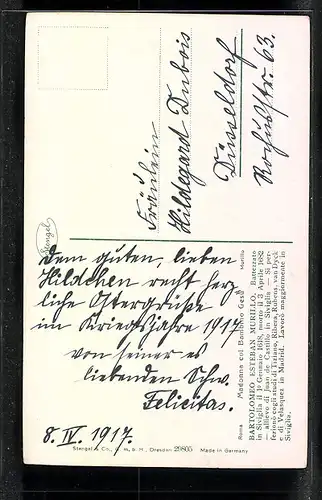 Fräulein
Hildegard Dubois
Düsseldorf
Rochusstr. 63.
Stengel
Dem guten, lieben
Hildchen recht herz-
liche Ostergrüße
im Kriegsjahre 1917
von seiner es
liebenden Schw.
Felicitas.
8. IV. 1917.
Roma Madonna col Bambino Gesù Murillo
BARTOLOMEO ESTEBAN MURILLO. Battezzato
in Siviglia il 1º Gennaio 1618, morto il 3 Aprile 1682
— allievo di Juan de Castillo in Siviglia — Si per-
fezionò cogli studi di Tiziano, Ribera, Rubens, van Dyck
e di Velasquez in Madrid. Lavorò maggiormente in
Siviglia.
Stengel & Co., G. m. b. H., Dresden 29805 Made in Germany